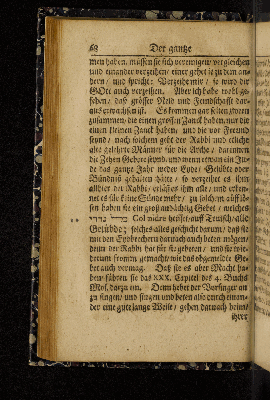 68 Der gantze
men haben, müssen sie sich vereinigen/ vergleichen
und einander verzeihen/ einer gehet zu dem an-
dern / und spricht: Verzeihe mir / so wird dir
GOtt auch verzeihen. Aber ich habe wohl ge-
sehen / daß grösser Neid und Feindschafft dar-
aus erwachsen ist. Es kommen gar selten
zusammen / die einen grossen Zanck haben / nur die
einen kleinen Zanck haben / und die vor Freund
seynd / nach solchem geht der Rabbi und etliche
alte gelehrte Männer für die Arche / darinnen
die Zehen Gebote seynd / und wenn etwan ein Ju-
de das gantze Jahr weder Eyde / Gelübde oder
Bündniß gehalten hätte / so verzeihet es ihm
allhier der Rabbi / erläßet ihm alle / und erken-
net es für eine Sünde mehr / zu solchem ablösen
sen haben sie ein groß andächtig Gebet / welches
כל נדרי Col nidre heisset / auff Teutsch / alle
Gelübde / solches alles geschicht darum / daß sie
mit den Eydbrechern darnach auch beten mögen /
denn der Rabbi hat für sie gebeten / und sie wie-
derum fromm gemacht / wie das obgemeldte Ge-
bet auch vermag. Daß sie es aber Macht ha-
ben / führen sie das XXX. Capitel des 4. Buchs
Mos. darzu ein. Denn hebet der Vorsinger an
zu singen / und singen und beten also durch einan-
der eine gute lange Weise / gehen darnach heim /
ihrer